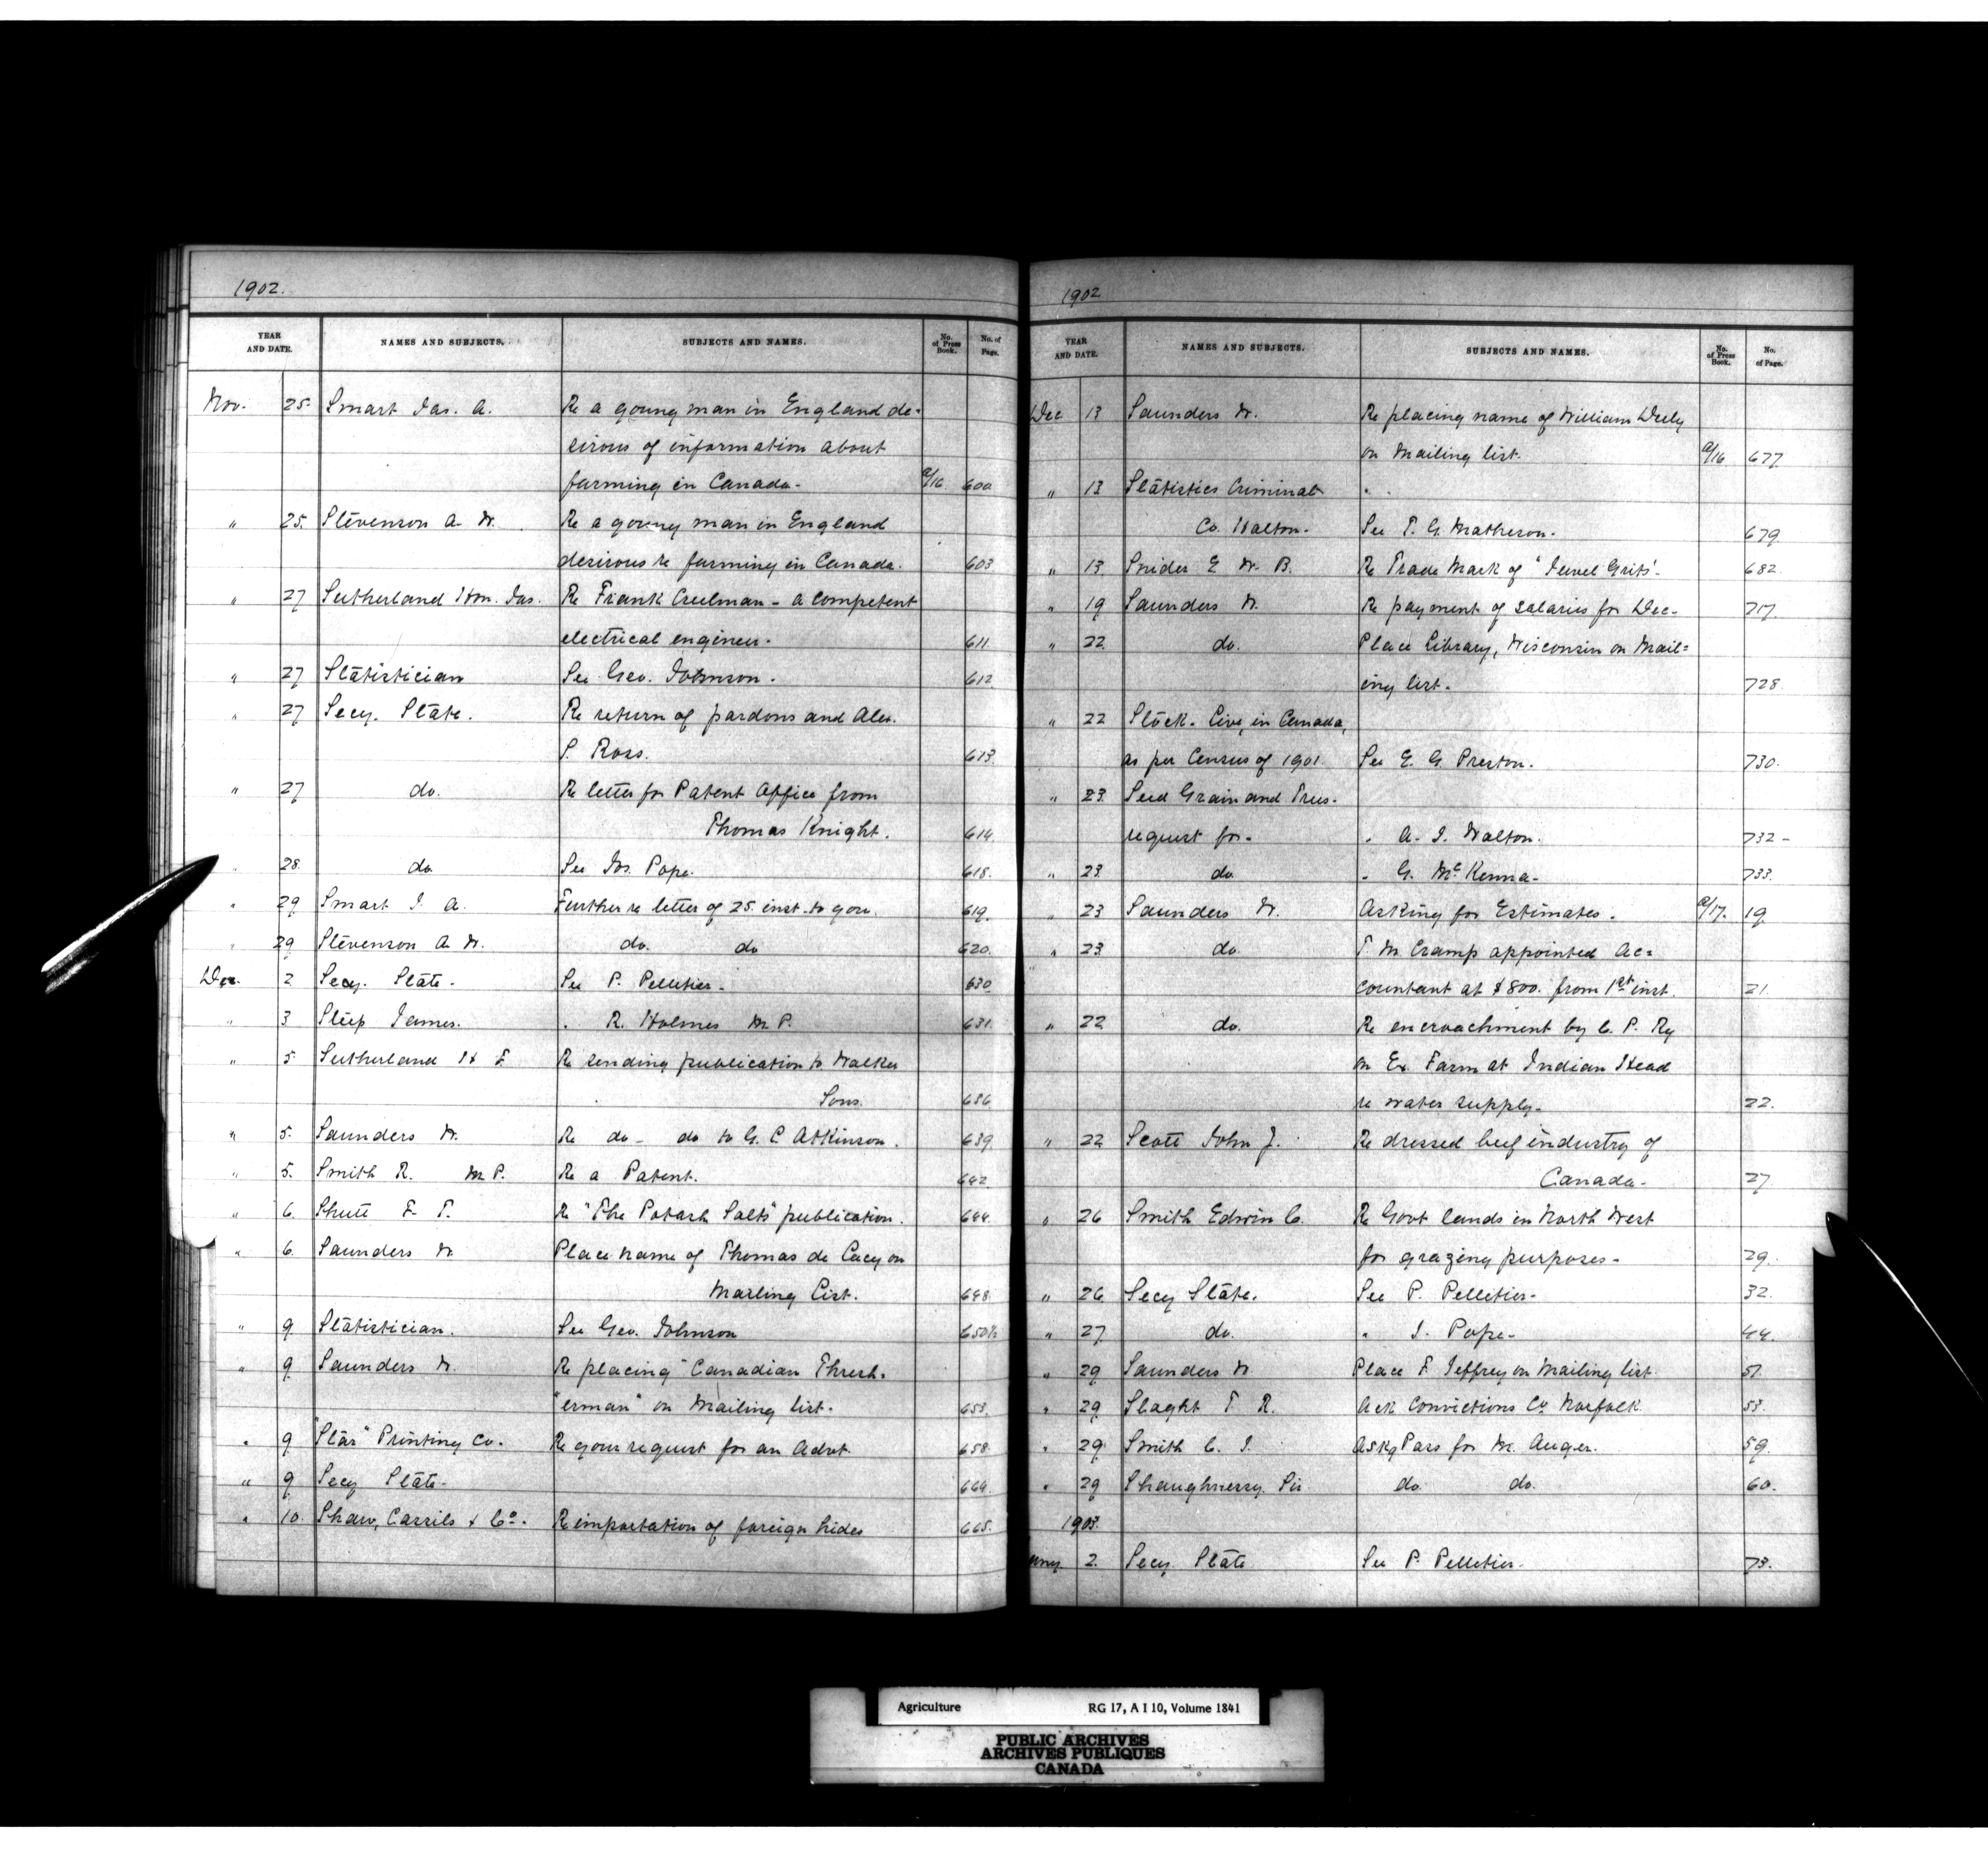 1902.
YEAR AND DATE. NAMES AND SUBJECTS. SUBJECTS AND NAMES. No. of Press Book. No. of Page.
Nov. 25. Smart Jas. A. Re a young man in England de-
sirous of information about
farming in Canada. a/16. 600
" 25. Stevenson A. W. Re a young man in England
desirous re farming in Canada. 603
" 27 Sutherland Hon. Jas. Re Frank Creelman - a competent
electrical engineer. 611
" 27 Statistician See Geo. Johnson. 612
" 27 Secy. State. Re return of pardons and Alex.
S. Ross. 613
" 27 do. Re letter for Patent Office from
Thomas Knight. 614
" 28. do See Jos. Pope. 618.
" 29 Smart J. A. Further re letter of 25 inst. to you. 619.
" 29 Stevenson A. W. do. do 620.
Dec. 2 Secy. State. See P. Pelletier. 630
" 3 Sleep James. " R. Holmes M.P. 631.
" 5 Sutherland H F Re sending publication to Walker
Sons. 636
" 5. Saunders W. Re do - do to G. C Atkinson. 639
" 5. Smith R. M.P. Re a Patent. 642
" 6. Shutt F. T. Re "The Potash Salts" publication. 644.
" 6. Saunders W Place name of Thomas de Cacy on
Mailing List. 648
" 9 Statistician. See Geo. Johnson 650½
" 9 Saunders W. Re placing "Canadian Thresh-
"erman" on Mailing list. 653.
" 9 "Star" Printing Co. Re your request for an Advt. 658
" 9 Secy State. 664.
" 10. Shaw, Cassils & Co. Re importation of foreign hides 665.
1902
YEAR AND DATE. NAMES AND SUBJECTS. SUBJECTS AND NAMES. No. of Press Book. No. of Page.
Dec 13 Saunders W. Re placing name of William
on Mailing list. a/16 677
" 13 Statistics Criminal
Co. Halton. See T. G. Matheson. 679
" 13 Snider E W. B. Re Trade Mark of "Jewel Grits". 682
" 19 Saunders W. Re payment of salaries for Dec. 717.
" 22 do. Place Library, Wisconsin on Mail-
ing list. 728
" 22 Stock. Live, in Canada,
as per Census of 1901. See E. G. Preston. 730.
" 23 Seed Grain and Trees.
request for. " A. J. Walton. 732 -
" 23 do. " G. McKenna. 733.
" 23 Saunders W. Asking for Estimates. a/17. 19
" 23 do. T M Cramp appointed Ac-
countant at $800. from 1st inst. 21.
" 22 do. Re encroachment by C. P. Ry
on Ex. Farm at Indian Head
re water supply. 22.
" 22 Scott John J. Re dressed beef industry of
Canada. 27
" 26 Smith Edwin C. Re Govt lands in North West
for grazing purposes. 29.
" 26 Secy State. See P. Pelletier. 32.
" 27 do. " J. Pope. 44.
" 29 Saunders W. Place F. Jeffrey on Mailing list. 51.
" 29 Slaght T R. Ack Convictions Co Norfolk. 53.
" 29 Smith C. J. Askg Pass for M. Auger. 59.
" 29 Shaughnessy. Sir do. do. 60.
1903.
2. Secy State See P. Pelletier. 73.
Agriculture RG 17, A I 10, Volume 1841
PUBLIC ARCHIVES
ARCHIVES PUBLIQUES
CANADA